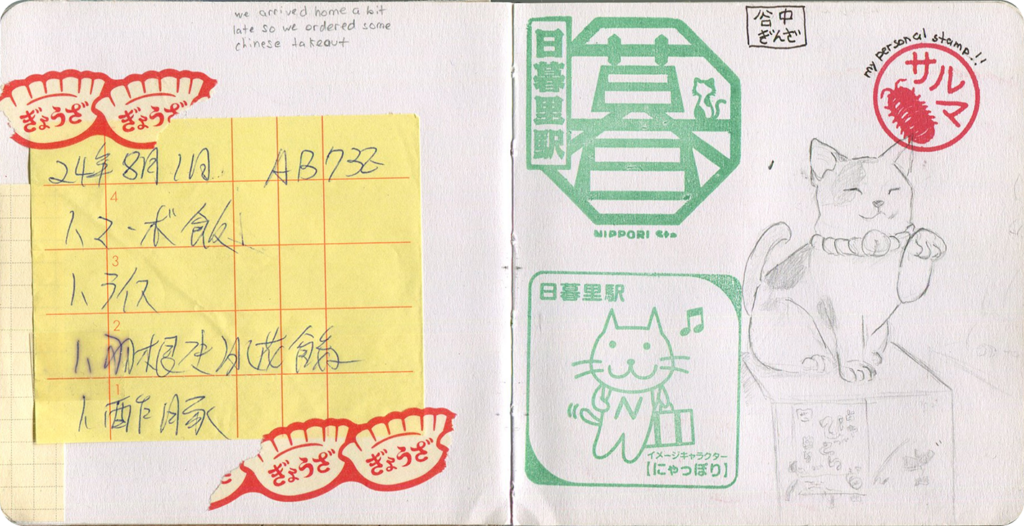 we arrived home a bit
late so we ordered some
chinese takeout
ぎょうざ
ぎょうざ
24年8月1日 AB738
4
1、マーボ飯
3
1、ライス
2
1
1、酢豚
ぎょうざ
ぎょうざ
日暮里駅
暮
NIPPORI Sta
谷中
ぎんざ
my personal stamp!!
サルマ
日暮里駅
N
イメージキャラクター
【にゃっぽり】